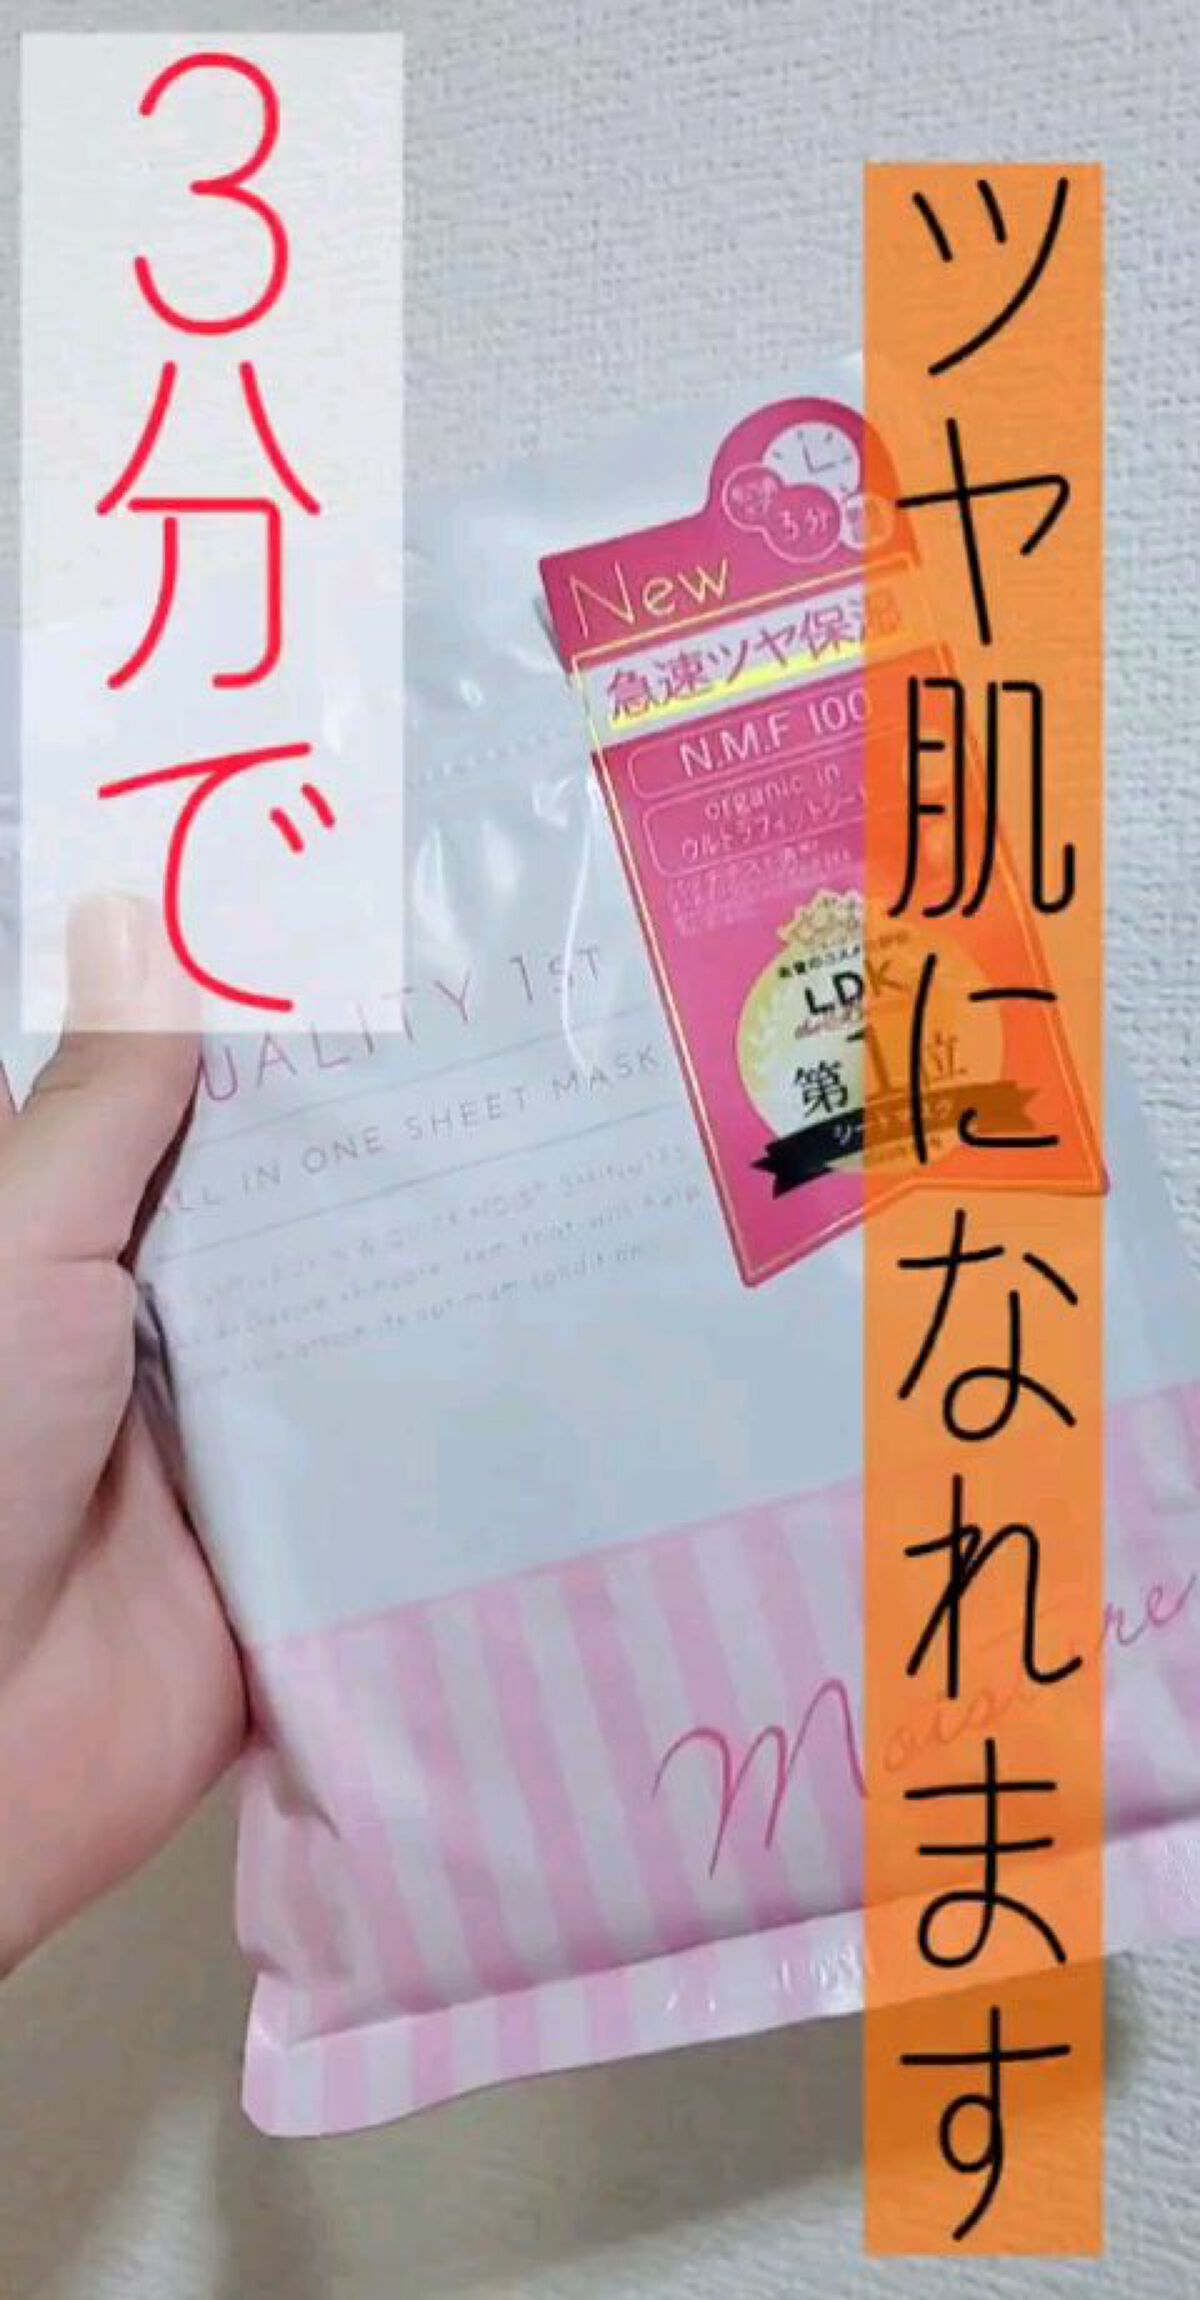 3分で
ツヤ肌になれます
3分
New
急速ツヤ保湿
N.M.F 100
organic in
ウルトラフィットシート
LDK
第1位
シートマスク
QUALITY 1ST
ALL IN ONE SHEET MASK
Moisture